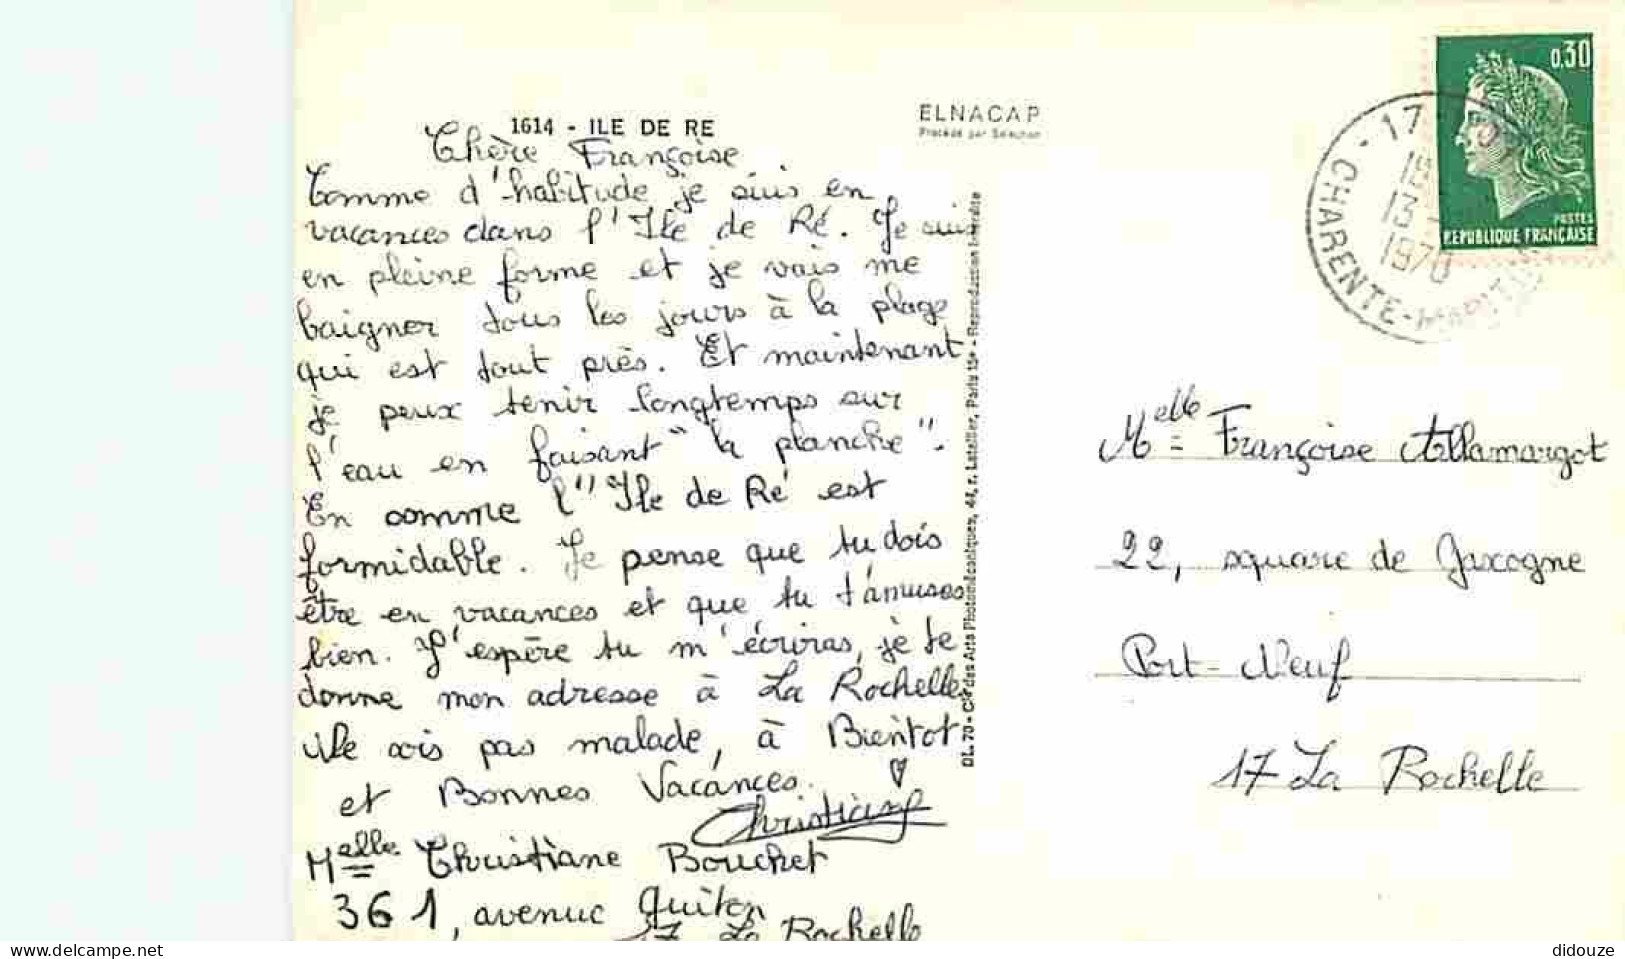 1614 - ILE DE RE
ELNACAP
Procédé par Sélection
Chère Françoise
Comme d'habitude je suis en
vacances dans l'Ile de Ré. Je suis
en pleine forme et je vais me
baigner tous les jours à la plage
qui est tout près. Et maintenant
je peux tenir longtemps sur
l'eau en faisant "la planche".
En somme l'"Ile de Ré est
formidable. Je pense que tu dois
être en vacances et que tu t'amuses
bien. J'espère tu m'écriras, je te
donne mon adresse à La Rochelle
Ne sois pas malade, à Bientot
et Bonnes Vacances.
Christiane
Melle Christiane Bouchet
361, avenue Guiton
17 La Rochelle
DL. 70 - Cie des Arts Photomécaniques, 44, r. Letellier, Paris 15e - Reproduction Interdite
0,30
POSTES
REPUBLIQUE FRANÇAISE
17
13 -
1970
CHARENTE-MARITIME
Melle Françoise Allamargot
22, square de Gascogne
Port-Neuf
17 La Rochelle
didouze